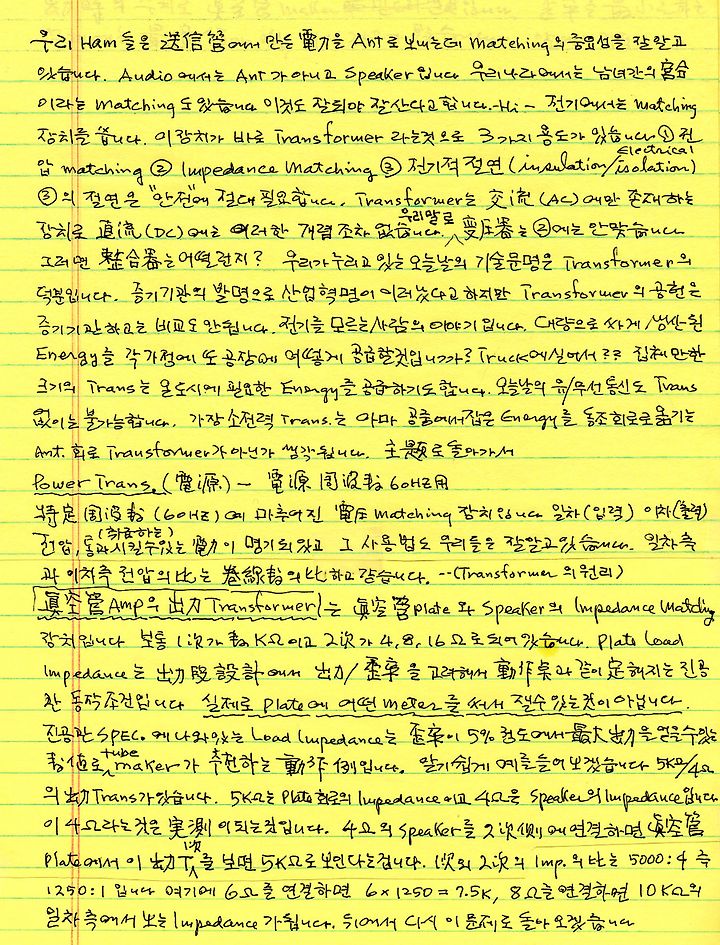 우리 Ham들은 送信管에서 만든 電力을 Ant로 보내는데 matching의 중요성을 잘알고
있습니다. Audio에서는 Ant가 아니고 Speaker입니다 우리나라에서는 남녀간의 宮合
이라는 matching도 있습니다 이것도 잘되야 잘산다고 합니다.-Hi- 전기에서는 matching
장치를 씁니다. 이 장치가 바로 Transformer 라는것으로 3가지 용도가 있습니다 ① 전
압 matching ② Impedance Matching ③ 전기적 절연 (insulation/electrical isolation)
③의 절연은 "안전"에 절대 필요합니다. Transformer는 交流(AC)에만 존재하는
장치로 直流(DC)에는 이러한 개념 조차 없습니다. 우리말로 変圧器는 ②에는 안맞습니다
그러면 整合器는 어떨런지? 우리가 누리고 있는 오늘날의 기술문명은 Transformer의
덕분입니다. 증기기관의 발명으로 산업혁명이 이러났다고 하지만 Transformer의 공헌은
증기기관하고는 비교도 안됩니다. 전기를 모르는 사람의 이야기 입니다. 대량으로 싸게 생산된
Energy를 각가정에 또 공장에 어떻게 공급할것입니까? Truck에 실어서?? 집채만한
크기의 Trans는 온 도시에 필요한 Energy를 공급하기도 합니다. 오늘날의 유/무선통신도 Trans
없이는 불가능합니다. 가장 소전력 Trans.는 아마 공중에서 잡은 Energy를 동조회로로 옮기는
Ant. 회로 Transformer가 아닌가 생각됩니다. 主題로 돌아가서
Power Trans. (電源) - 電源 周波數 60Hz用
特定 周波數 (60Hz)에 마추어진 電圧 matching 장치입니다 일차(입력) 이차(출력)
전압, 통과시킬수있는 (허용하는) 電力이 명기되있고 그 사용법도 우리들은 잘알고 있습니다. 일차측
과 이차측 전압의 比는 卷線數의 比하고 같습니다. --(Transformer의 원리)
眞空管 Amp의 出力 Transformer는 眞空管 plate 와 Speaker의 Impedance Matching
장치입니다 보통 1次가 數 KΩ이고 2次가 4, 8, 16 Ω로 되어있습니다. Plate Load
Impedance는 出力段 設計에서 出力/歪率을 고려해서 動作点과 같이 定해지는 진공
관 동작조건입니다 실제로 Plate에 어떤 meter를 써서 잴수 있는것이 아닙니다.
진공관 SPEC. 에 나와있는 Load Impedance는 歪率이 5% 정도에서 最大出力을 얻을수있는
數値로 tube maker가 추천하는 動作例입니다. 알기쉽게 예를들어 보겠습니다 5KΩ/4Ω
의 出力 Trans가 있습니다. 5KΩ는 Plate회로의 Impedance이고 4Ω은 Speaker의 Impedance입니다
이 4Ω라는것은 実測이 되는것입니다. 4Ω의 Speaker를 2次側에 연결하면 眞空管
Plate에서 이 出力T 1次를 보면 5KΩ로 보인다는겁니다. 1次와 2次의 Imp.의 比는 5000:4 즉
1250:1 입니다 여기에 6Ω를 연결하면 6x1250=7.5K, 8Ω를 연결하면 10KΩ의
일차측에서 보는 Impedance가 됩니다. 뒤에서 다시 이 문제로 돌아 오겠습니다